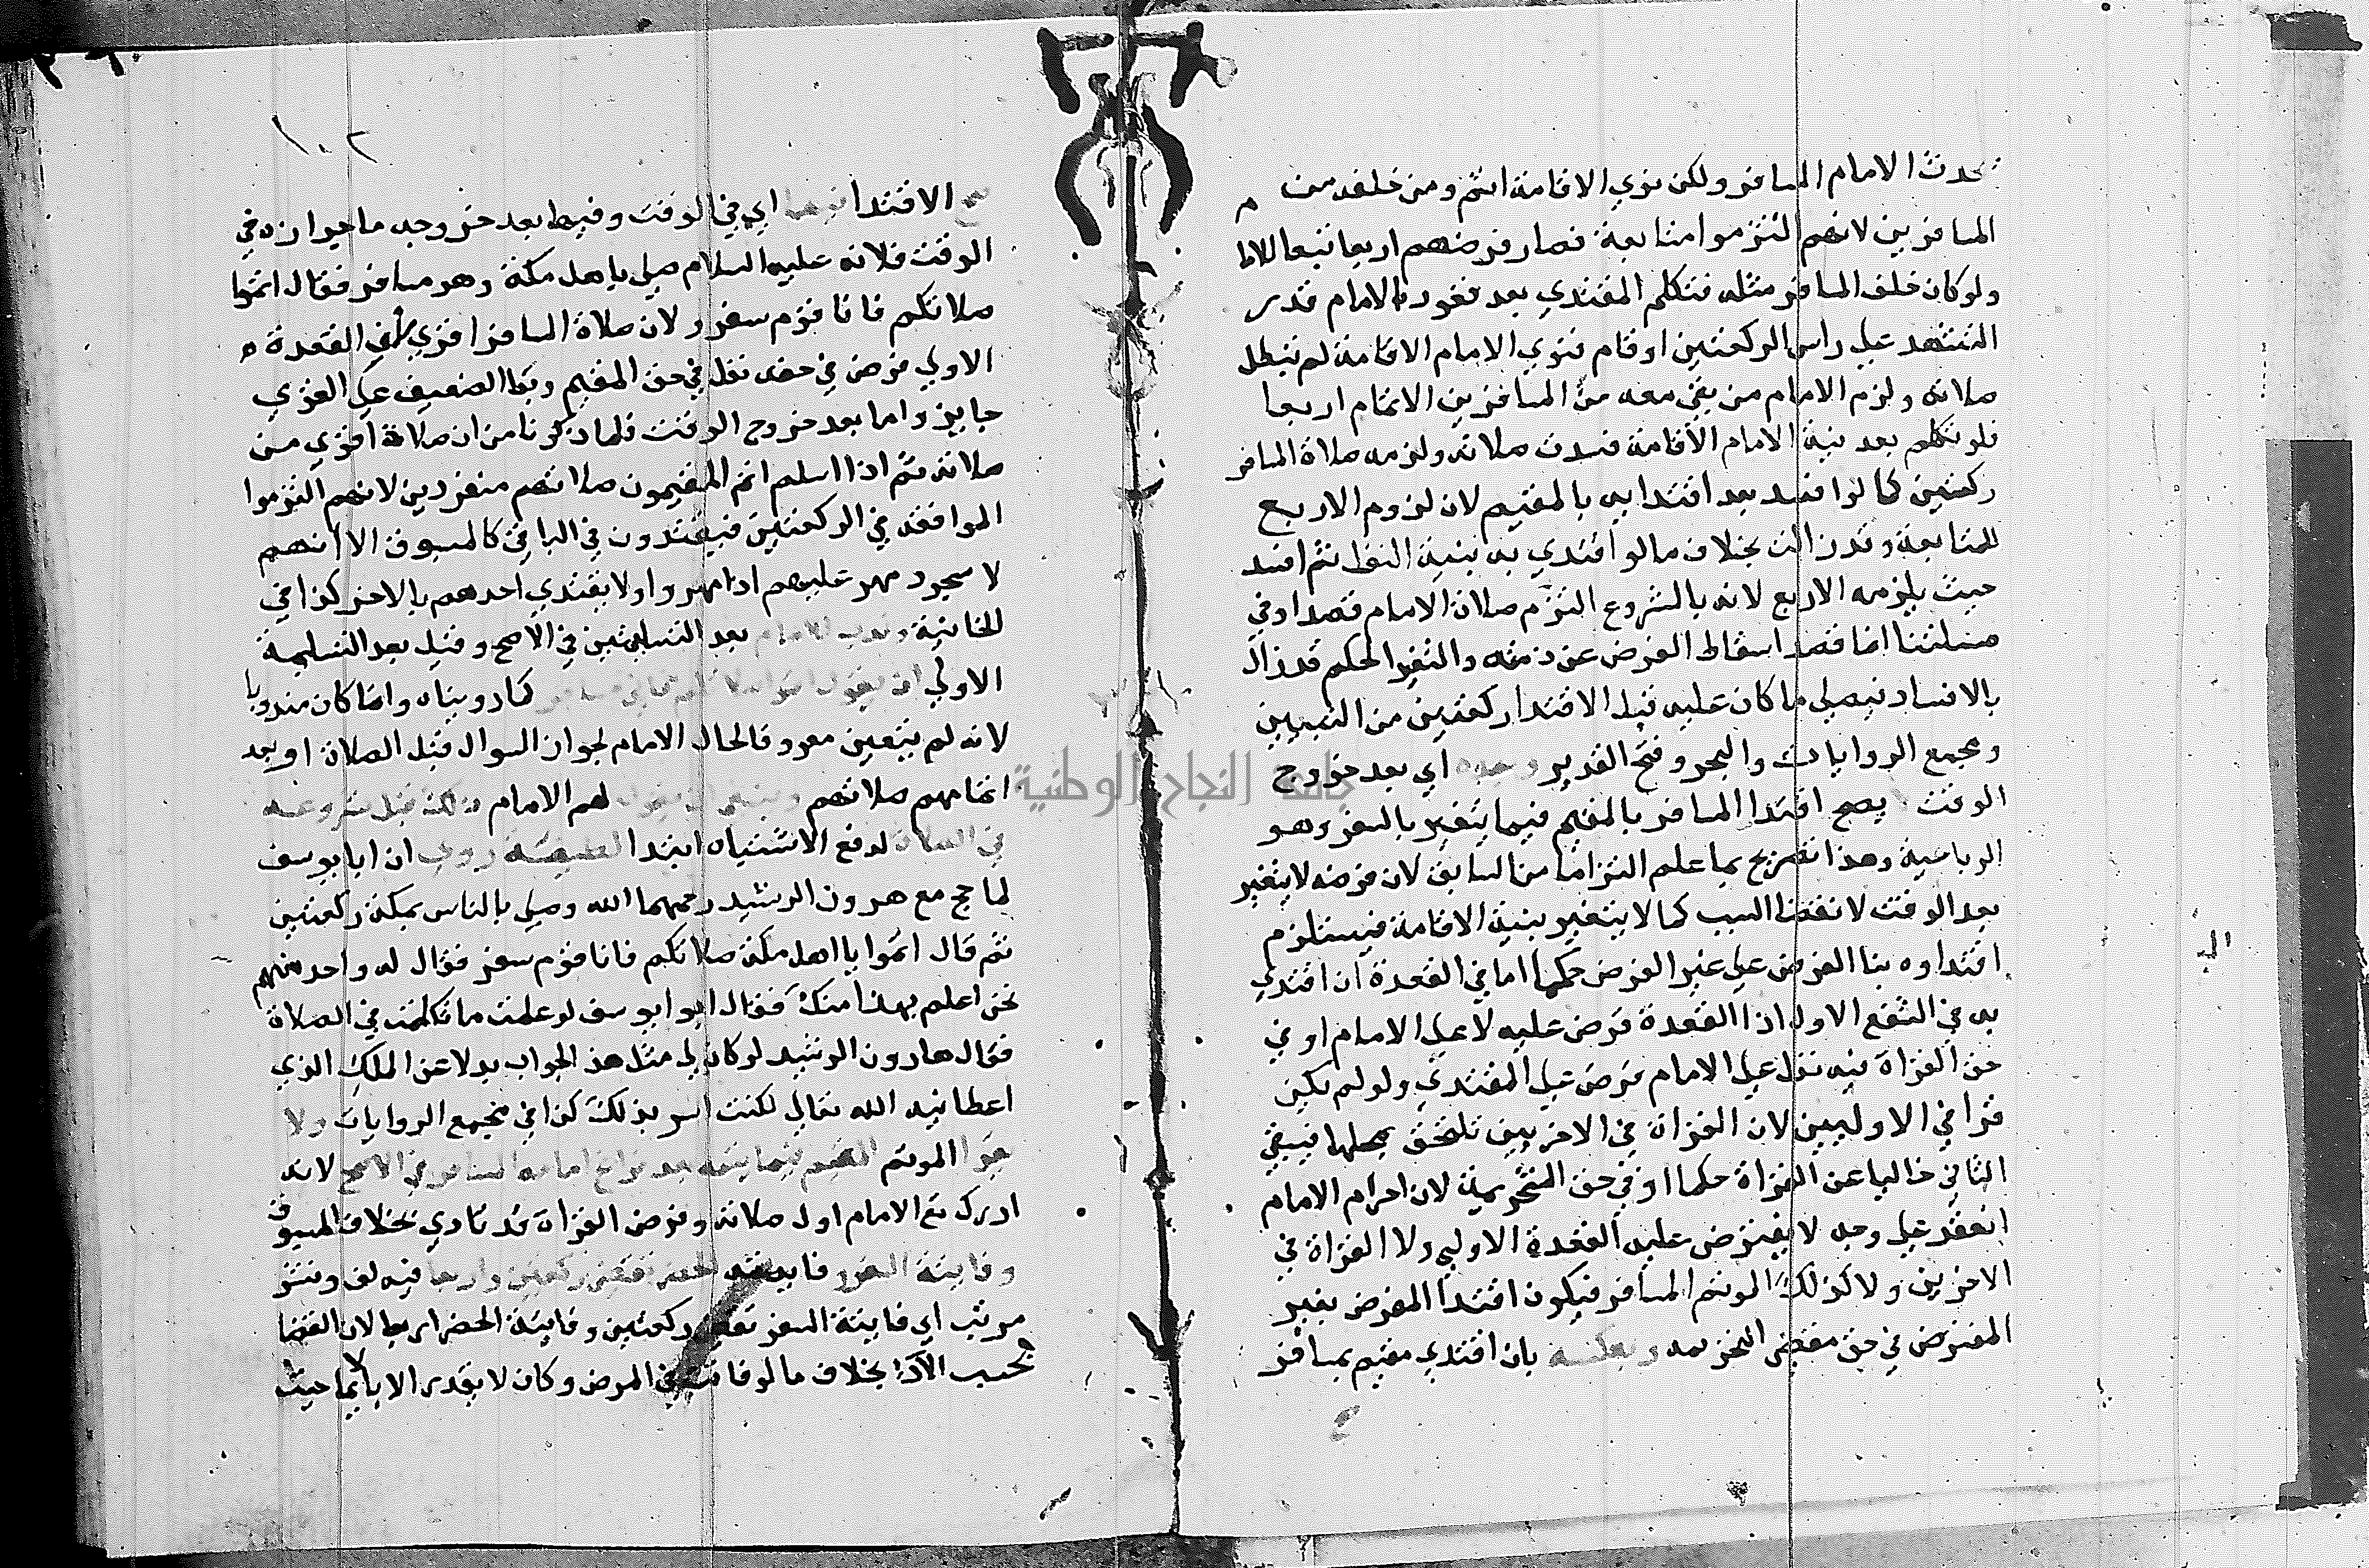 يحدث الامام المسافر ولكن نوي الاقامة اتم ومن خلفه من
المسافرين لانهم التزموا متابعة فصار فرضهم اربعا تبعا للاما م
ولو كان خلف المسافر مثله فتكلم المقتدي بعد قعود الامام قدر
التشهد علي راس الركعتين او قام فنوي الامام الاقامة لم تبطل
صلاته ولزم الامام من بقي معه من المسافرين الاتمام اربعا
فلو تكلم بعد نية الامام الاقامة فسدت صلاته ولزمه صلاة المسافر
ركعتين كما لو افسد بعد اقتدايه بالمقيم لان لزوم الاربع
للمتابعة وقد زالت بخلاف ما لو اقتدي به بنية النفل ثم افسد
حيث يلزمه الاربع لانه بالشروع التزم صلاة الامام قصدا وفي
مسئلتنا انما قصد اسقاط الفرض عن ذمته والتغير الحكم قد زال
بالافساد فيصلي ما كان عليه قبل الاقتدا ركعتين من التبيين
ومجمع الروايات والبحر وفتح القدير وبعده اي بعد خروج
الوقت يصح اقتدا المسافر بالمقيم فيما يتغير بالسفر وهو
الرباعية وهذا تصريح بما علم التزاما من السابق لان فرضه لا يتغير
بعد الوقت لانقضا السبب كما لا يتغير بنية الاقامة فيستلزم
اقتداوه بنا الفرض علي غير الفرض حكما اما في القعدة ان اقتدي
به في الشفع الاول اذ القعدة فرض عليه لا علي الامام او في
حق القراة فيه نفل علي الامام فرض علي المقتدي ولو لم يكن
قرا في الاوليين لان القراة في الاخريين تلتحق بمحلها فيبقي
الثاني خاليا عن القراة حكما او في حق التحريمة لان احرام الامام
انعقد علي وجه لا يفترض عليه القعدة الاولي ولا القراة في
الاخرين ولا كذلك الموتم المسافر فيكون اقتدا المفرض بغير
المفترض في حق مقتضي التحريمه وبعكسه بان اقتدي مقيم بمسافر
الي
١٠٢
صح الاقتدا فيهما اي في الوقت وفيما بعد خروجه ما جوازه في
الوقت فلانه عليه السلام صلي باهل مكة وهو مسافر فقال اتموا
صلاتكم فانا قوم سفر ولان صلاة المسافر اقوي لان القعدة
الاولي فرض في حقه نفل في حق المقيم وبنا الضعيف علي القوي
جايز واما بعد خروج الوقت فلما ذكرنا من ان صلاة اقوي من
صلاته ثم اذا سلم اتم المقيمون صلاتهم منفردين لانهم التزموا
الموافقه في الركعتين فيقتدون في الباقي كالمسبوق الا انهم
لا سجود سهو عليهم اذا سهوا ولا يقتدي احدهم بالاخر كذا في
الخانية وندب للامام بعد التسليمتين في الاصح وقيل بعد التسليمة
الاولي ان يقول اتموا صلاتكم فاني مسافر كما رويناه وانما كان مندوبا
لانه لم يتعين معرفا لحال الامام لجواز السوال قبل الصلاة او بعد
اتمامهم صلاتهم وينبغي ان يقول لهم الامام ذلك قبل شروعه
في الصلاة لدفع الاشتباه ابتدا روي ان ابا يوسف
لما حج مع هرون الرشيد رحمهما الله وصلي بالناس بمكة ركعتين
ثم قال اتموا يا اهل مكة صلاتكم فانا قوم سفر فقال له واحد منهم
نحن اعلم بهذا منك فقال ابو ابوسف لو علمت ما تكلمت في الصلاة
فقال هارون الرشيد لو كان لي مثل هذ الجواب بدلا عن الملك الذي
اعطانيه الله تعالي لكنت اسر بذلك كذا في مجمع الروايات ولا
يقرا الموتم المقيم فيما يتمه بعد فراغ امامه المسافر في الاصح لانه
ادرك مع الامام اول صلاته وفرض القراة قد تادي بخلاف المسبوق
وفايتة السفر وفايتة الحضر تقضي ركعتين واربعا فيه لف ونشر
مرتب اي فايتة السفر تقضي ركعتين وفايتة الحضر اربعا لان القضا
بحسب الادا بخلاف ما لو فاتت في المرض وكان لا يقدر الا بالايما حيث
جامعة النجاح الوطنية